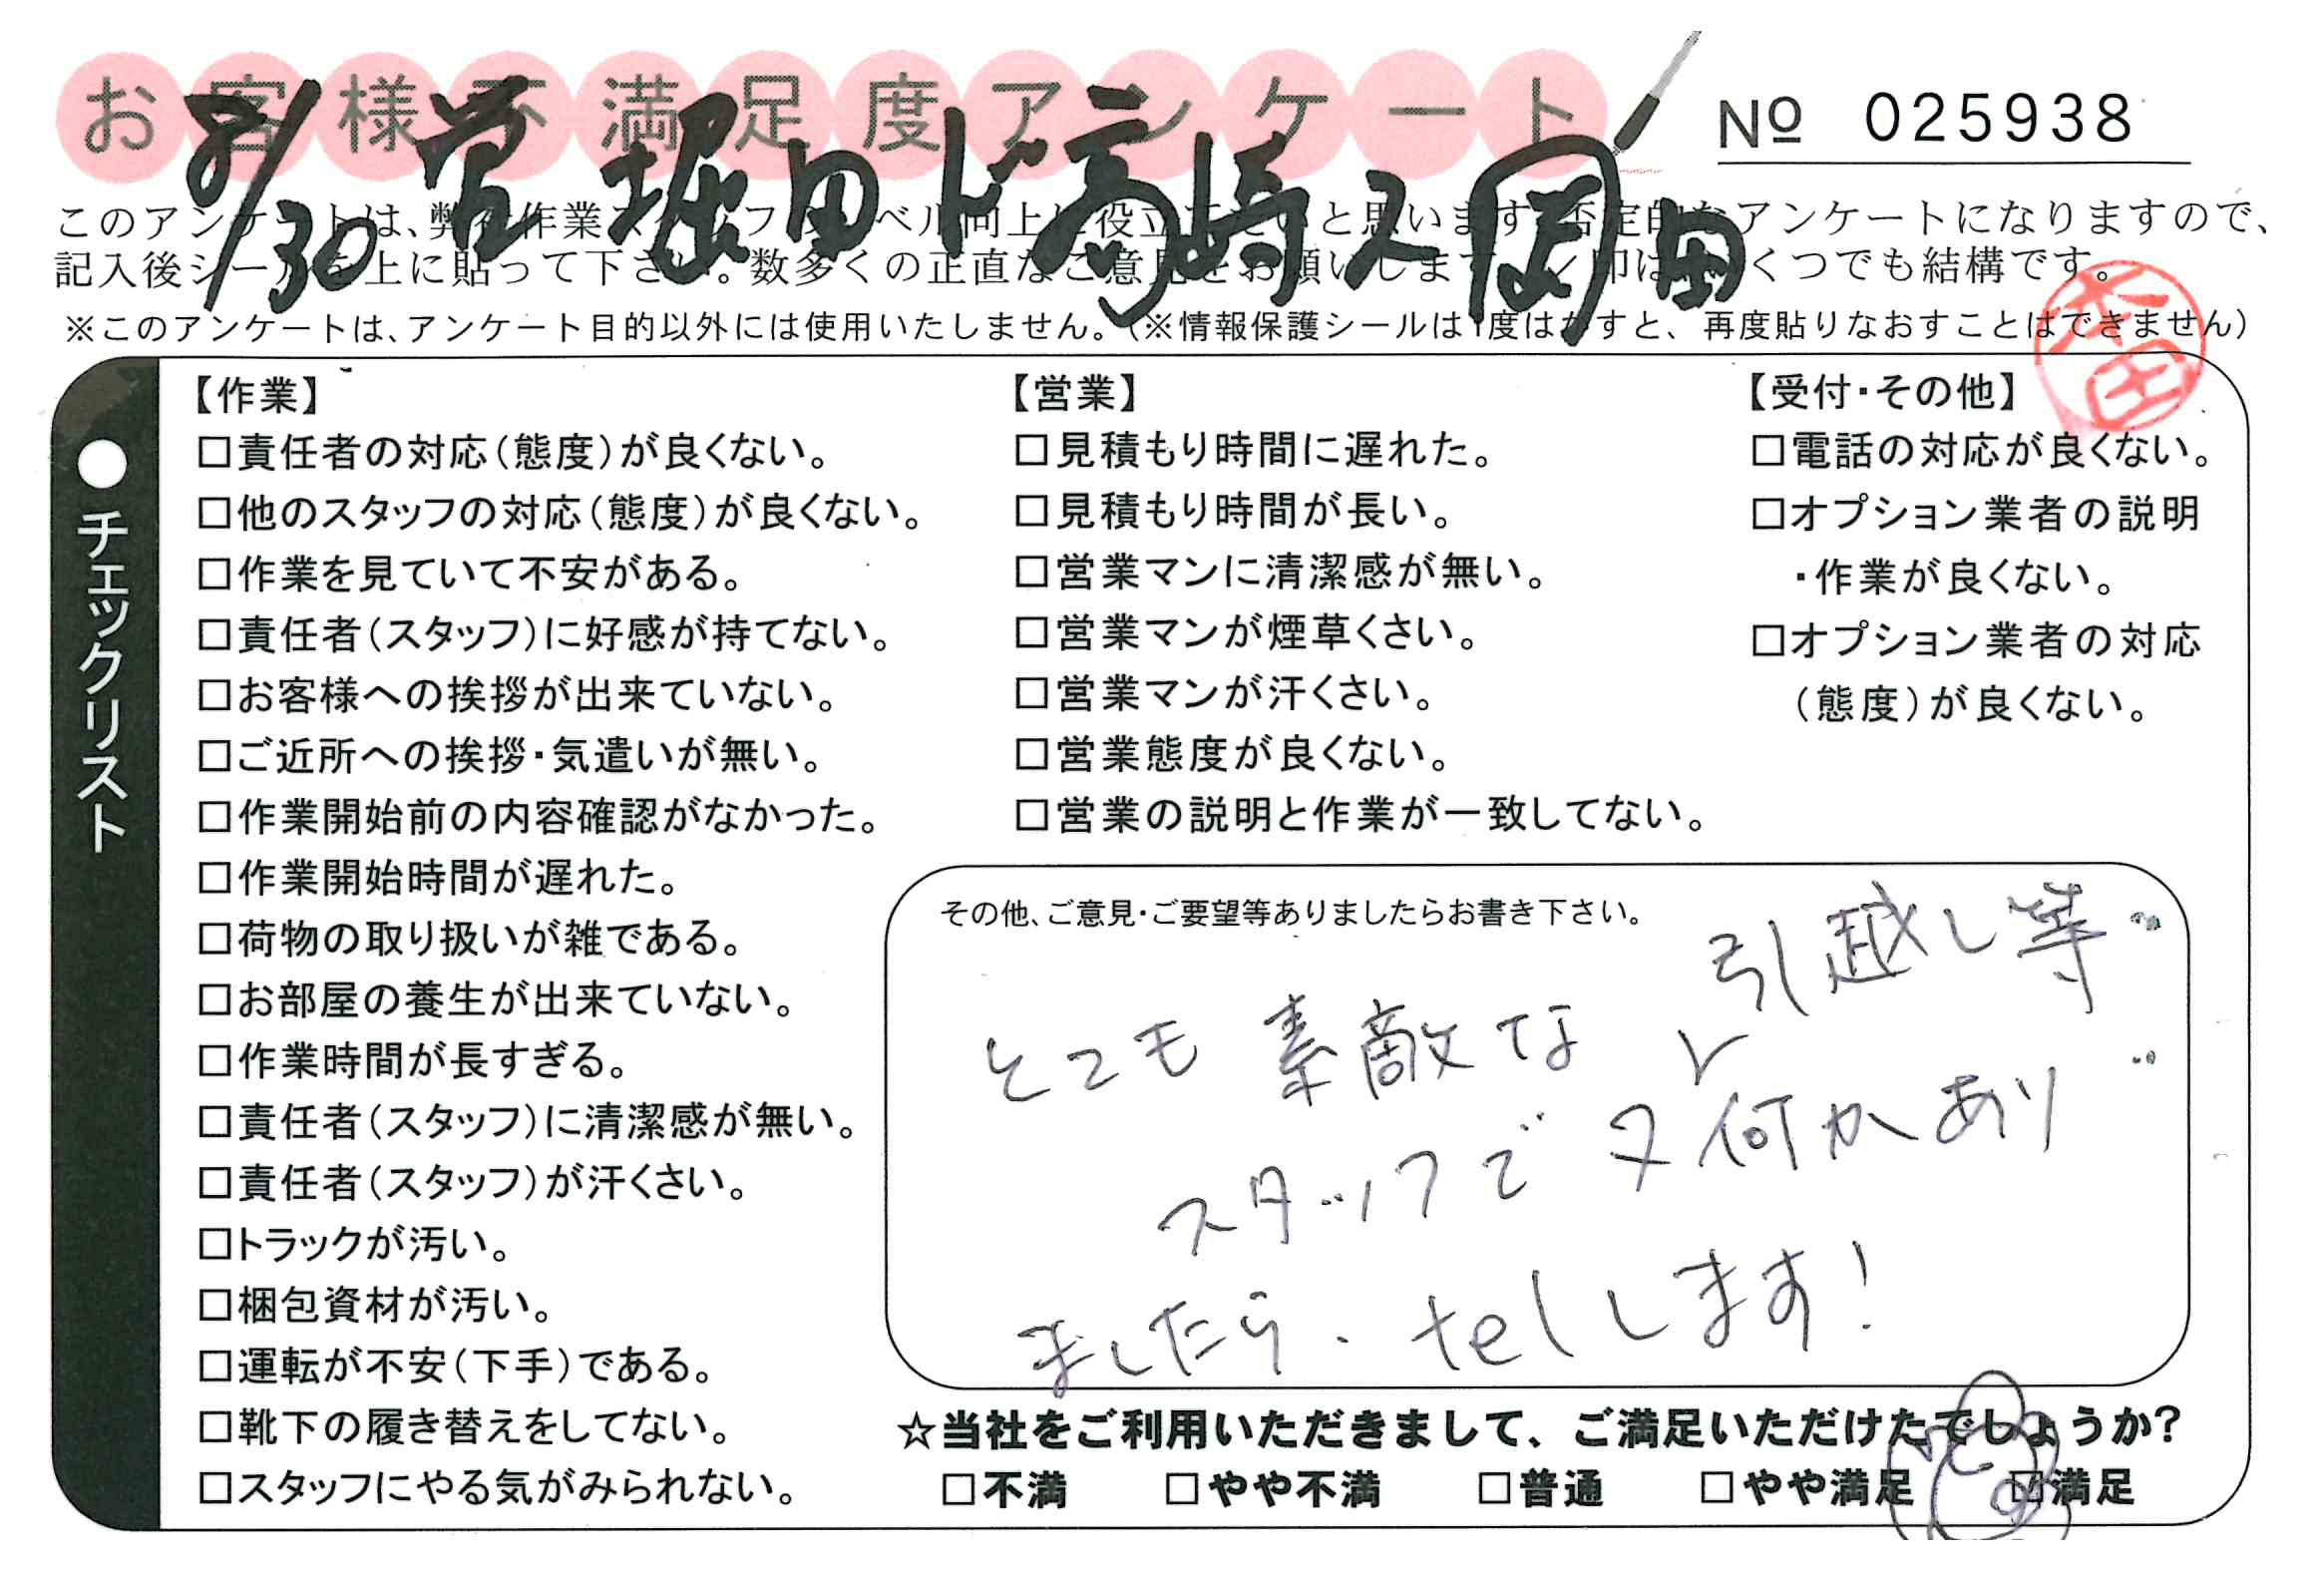 お客様不満足度アンケート
№ 025938
8/30 営 堀田 ド 高崎 ス 岡田
このアンケートは、弊社作業スタッフのレベル向上に役立てたいと思います。否定的なアンケートになりますので、
記入後シールを上に貼って下さい。数多くの正直なご意見をお願いします。✓印はいくつでも結構です。
※このアンケートは、アンケート目的以外には使用いたしません。(※情報保護シールは1度はがすと、再度貼りなおすことはできません)
本田
●チェックリスト
【作業】
□責任者の対応(態度)が良くない。
□他のスタッフの対応(態度)が良くない。
□作業を見ていて不安がある。
□責任者(スタッフ)に好感が持てない。
□お客様への挨拶が出来ていない。
□ご近所への挨拶・気遣いが無い。
□作業開始前の内容確認がなかった。
□作業開始時間が遅れた。
□荷物の取り扱いが雑である。
□お部屋の養生が出来ていない。
□作業時間が長すぎる。
□責任者(スタッフ)に清潔感が無い。
□責任者(スタッフ)が汗くさい。
□トラックが汚い。
□梱包資材が汚い。
□運転が不安(下手)である。
□靴下の履き替えをしてない。
□スタッフにやる気がみられない。
【営業】
□見積もり時間に遅れた。
□見積もり時間が長い。
□営業マンに清潔感が無い。
□営業マンが煙草くさい。
□営業マンが汗くさい。
□営業態度が良くない。
□営業の説明と作業が一致してない。
【受付・その他】
□電話の対応が良くない。
□オプション業者の説明
・作業が良くない。
□オプション業者の対応
(態度)が良くない。
その他、ご意見・ご要望等ありましたらお書き下さい。
引越し等
とても素敵な
スタッフで又何かあり
ましたら、telします!
☆当社をご利用いただきまして、ご満足いただけたでしょうか?
□不満 □やや不満 □普通 □やや満足 ☑満足